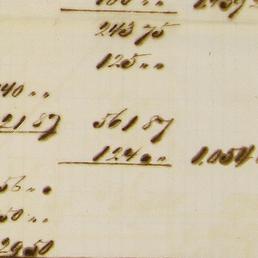 243 75
125 " "
40 " "
21 87 561 87
124 " " 1,054
56 " "
50 " "
29 50